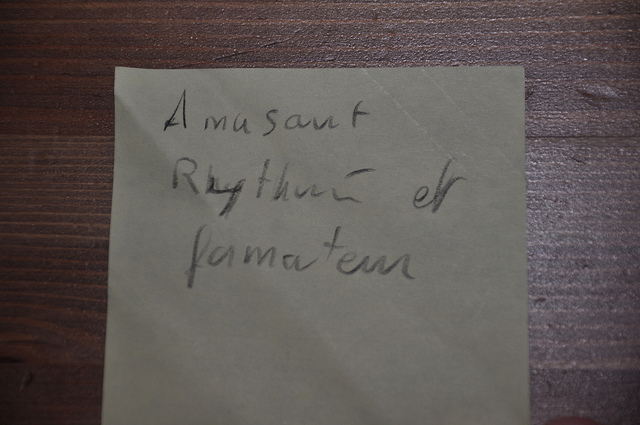 Amusant
Rhythmé et
formateur